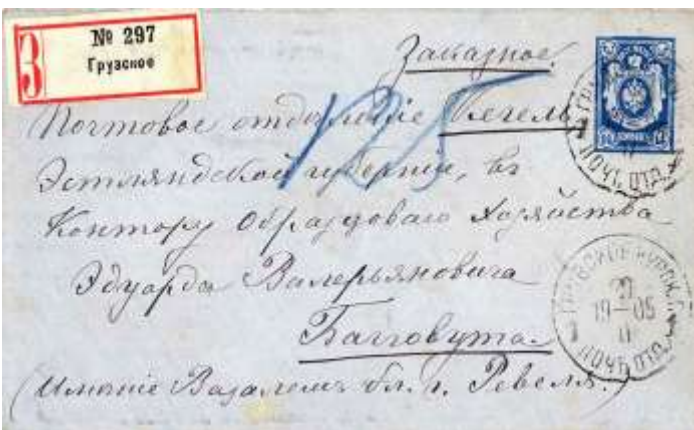 № 297
З Грузское
Заказное.
125
Почтовое отделение Кегель
Эстляндской губернии, въ
Контору Образцоваго Хозяйства
Эдуарда Валерьяновича
Багговута.
(Имѣніе Вазалемъ бл. г. Ревеля.)
ПОЧТ. ОТД.
ГРУЗСКОЕ КУРСК. Г.
19—05
ПОЧТ. ОТД.